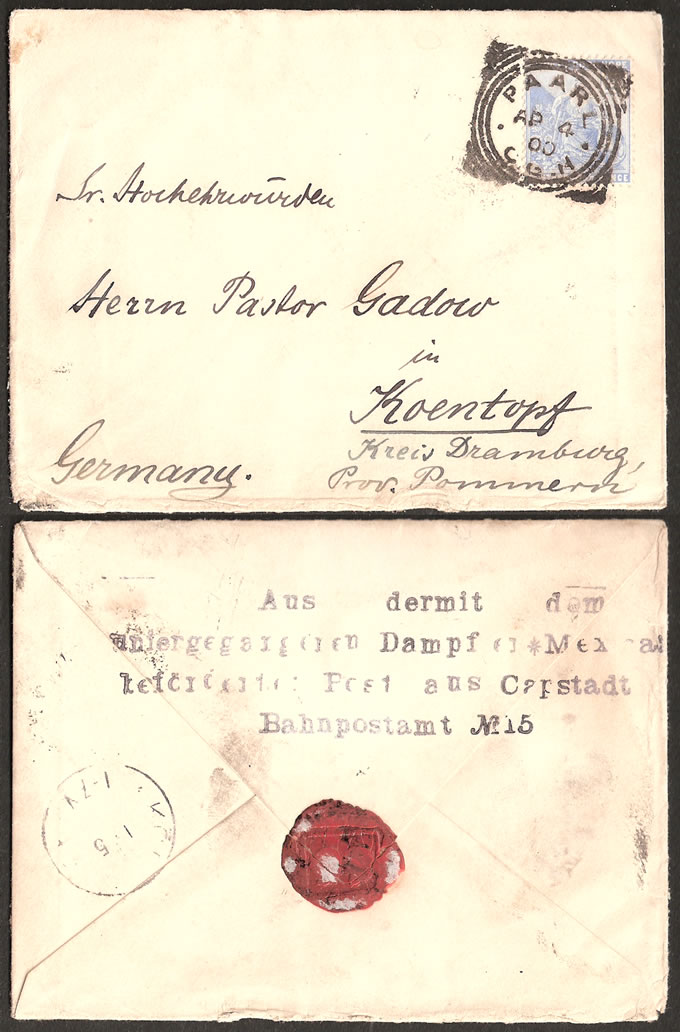 PAARL
AP 4
00
C.G.H
PENCE
Sr. Hochehrwürden
Herrn Pastor Gadow
in
Koentopf
Kreis Dramburg,
Prov. Pommern
Germany.
Aus dermit dem
untergegangenen Dampfer *Mexican
beförderter Post aus Capstadt
Bahnpostamt №15
1-7